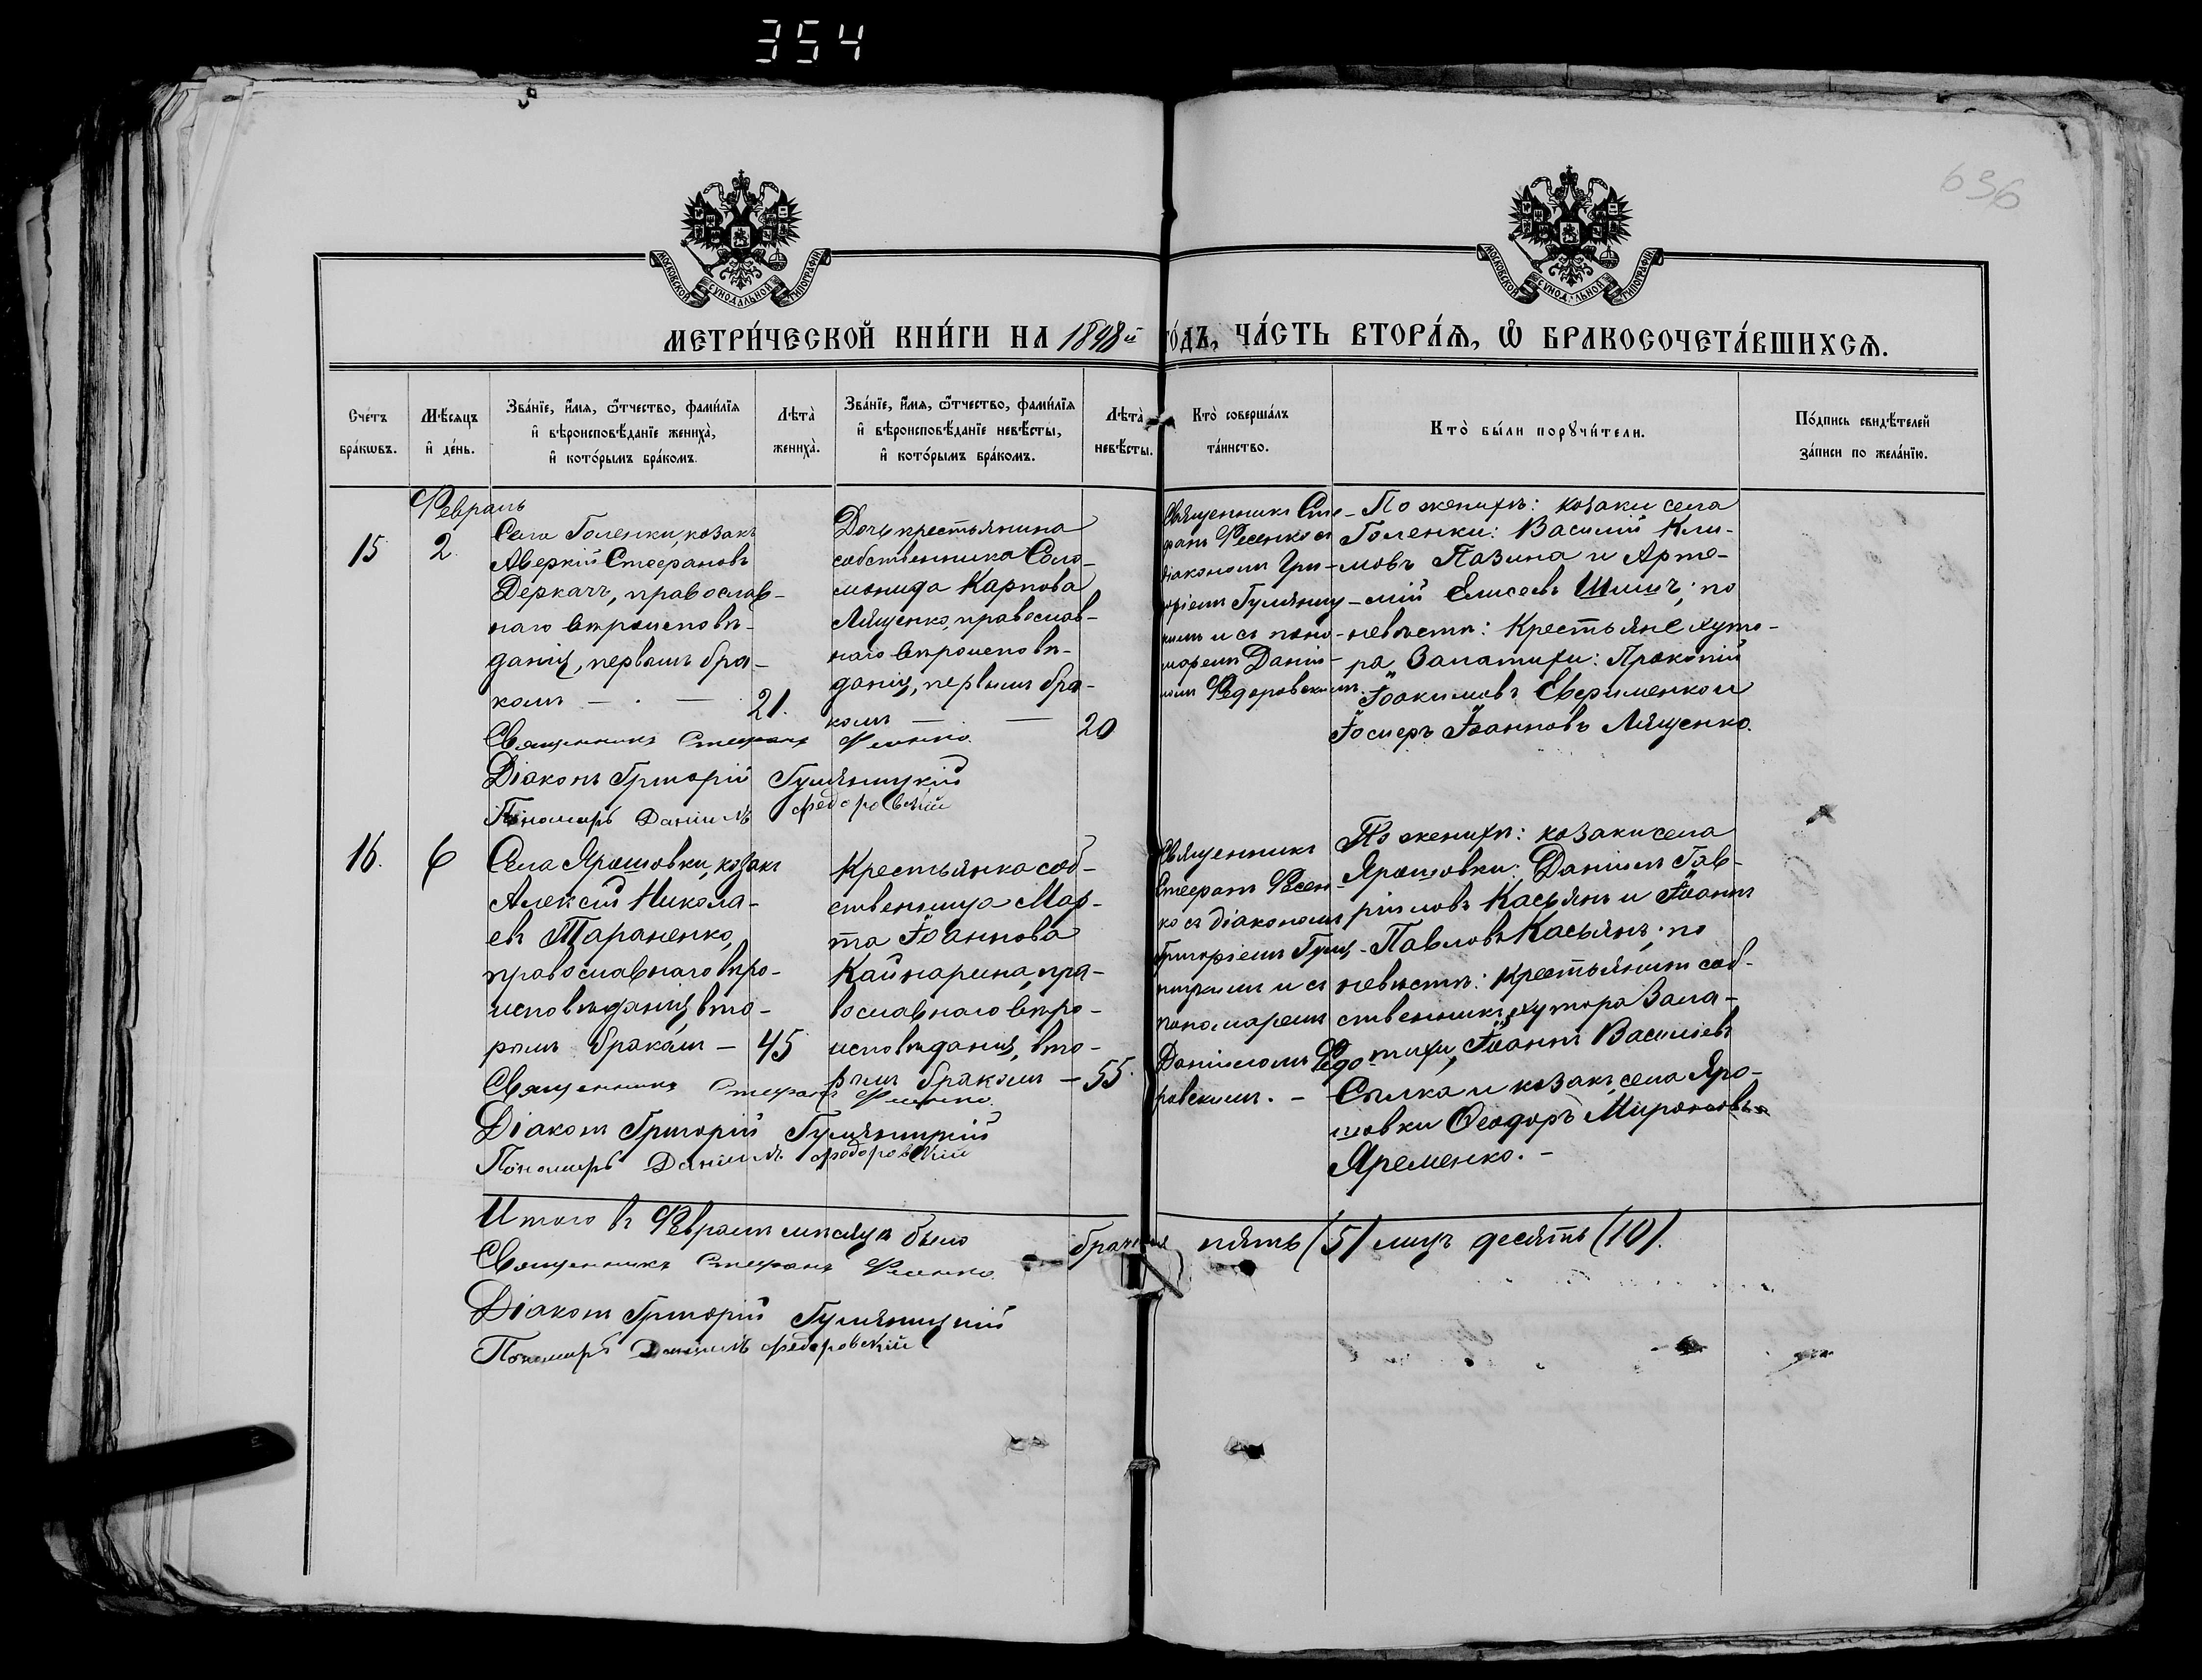 354
636
МОСКОВСКОЙ СУНОДАЛЬНОЙ ТИПОГРАФІИ
МОСКОВСКОЙ СУНОДАЛЬНОЙ ТИПОГРАФІИ
МЕТРИ́ЧЕСКОЙ КНИ́ГИ НА 1898й ГО́ДЪ, ЧА́СТЬ ВТОРА́Я, Ѡ БРАКОСОЧЕТА́ВШИХСЯ.
Сче́тъ
бра́кѡвъ.
Мѣ́сяцъ
и҆ де́нь.
Зва́нїе, и҆́мя, ѻ҆́тчество, фами́лїя
и҆ вѣроисповѣ́данїе жениха̀,
и҆ кото́рымъ бра́комъ.
Лѣта̀
жениха̀.
Зва́нїе, и҆́мя, ѻ҆́тчество, фами́лїя
и҆ вѣроисповѣ́данїе невѣ́сты,
и҆ кото́рымъ бра́комъ.
Лѣта̀
невѣ́сты.
Кто̀ соверша́лъ
та́инство.
Кто̀ бы́ли порꙋчи́тели.
По́дпись свидѣ́телей
за́писи по жела́нїю.
Февраль
15
2.
Села Голенки, козакъ
Аверкій Стефановъ
Деркачъ, православ-
наго вѣроисповѣ-
данія, первымъ бра-
комъ — . —
21.
Дочь крестьянина
собственника Соло-
монида Карпова
Лященко, православ-
наго вѣроисповѣ-
данія, первымъ бра-
комъ — —
20
Священникъ Сте-
фанъ Фесенко съ
діакономъ Гри-
горіемъ Гуляниц-
кимъ и съ поно-
маремъ Даніи-
ломъ Федоровскимъ.
По женихѣ: козаки села
Голенки: Василій Кли-
мовъ Пазина и Арте-
мій Елисеевъ Шишъ; по
невѣстѣ: Крестьяне хуто-
ра Запатихи: Прокопій
Іоакимовъ Евфименко и
Іосифъ Іоанновъ Лященко.
Священникъ Стефанъ Фесенко.
Діаконъ Григорій Гуляницкій
Пономарь Даніилъ Федоровскій
16.
6
Села Ярошовки, козакъ
Алексій Никола-
евъ Тараненко,
православнаго вѣро-
исповѣданія, вто-
рымъ бракомъ —
45
Крестьянка соб-
ственница Мар-
та Іоаннова
Кайнарина, пра-
вославнаго вѣро-
исповѣданія, вто-
рымъ бракомъ —
55.
Священникъ
Стефанъ Фесен-
ко съ діакономъ
Григоріемъ Гуля-
ницкимъ и съ
пономаремъ
Даніиломъ Федо-
ровскимъ. —
По женихѣ: козаки села
Ярошовки: Даніилъ Гав-
ріиловъ Касьянъ и Іоаннъ
Павловъ Касьянъ; по
невѣстѣ: Крестьянинъ соб-
ственникъ, хутора Запа-
тихи, Іоаннъ Василіевъ
Сылка и козакъ села Яро-
шовки Ѳеодоръ Мироновъ
Яременко. —
Священникъ Стефанъ Фесенко.
Діаконъ Григорій Гуляницкій
Пономарь Даніилъ Федоровскій
Итого въ Февралѣ мѣсяцѣ было браковъ пять (5) лицъ десять (10).
Священникъ Стефанъ Фесенко.
Діаконъ Григорій Гуляницкій
Пономарь Даніилъ Федоровскій